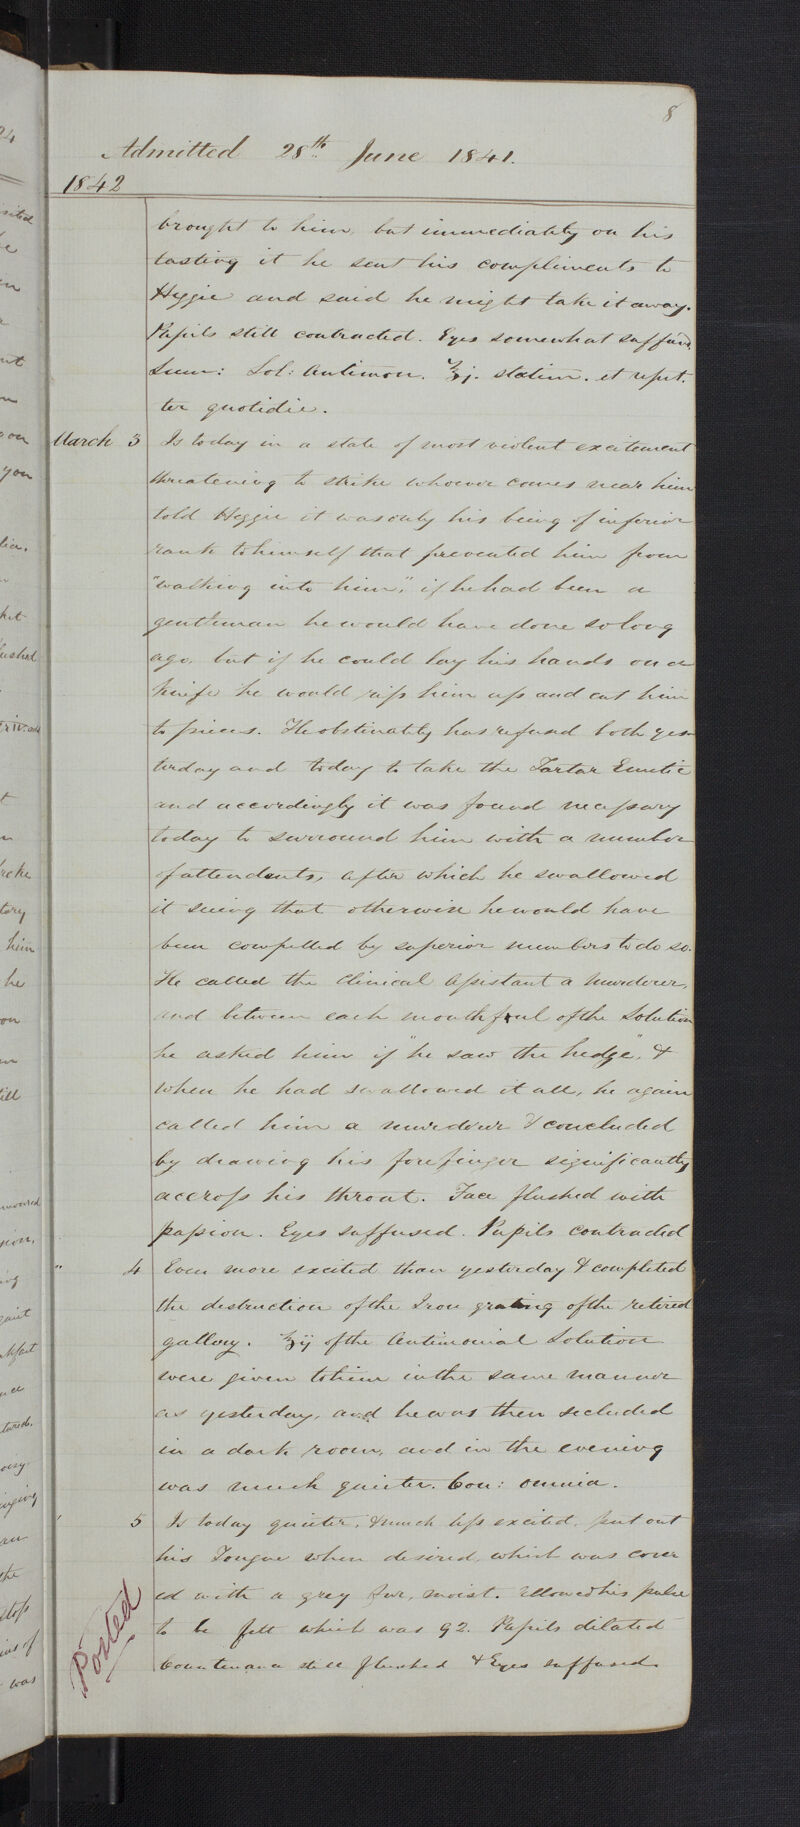 8
Admitted 28th June 1841.
1842
brought to him, but immediately on his
tasting it he sent his compliments to
Heggie and said he might take it away.
Pupils still contracted. Eyes somewhat suffused.
Sum: Sol: Antimon. ℥j. statim. et repet.
ter quotidie.
March 3 Is today in a state of most violent excitement
threatening to strike whoever comes near him
told Heggie it was only his being of inferior
rank to himself that prevented him from
"walking into him", if he had been a
gentleman he would have done so long
ago, but if he could lay his hands on a
knife he would rip him up and cut him
to pieces. He obstinately has refused both yes
terday and today to take the Tartar Emetic
and accordingly it was found necessary
today to surround him with a number
of attendants, after which he swallowed
it seeing that otherwise he would have
been compelled by superior numbers to do so.
He called the Clinical Assistant a murderer,
and between each mouthful of the Solution
he asked him if "he saw the hedge", &
when he had swallowed it all, he again
called him a murderer & concluded
by drawing his forefinger significantly
accross his throat. Face flushed with
passion. Eyes suffused. Pupils contracted
" 4 Even more excited than yesterday & completed
the destruction of the Iron grating of the retired
gallery. ℥ij of the Antimonial Solution
were given to him in the same manner
as yesterday, and he was then secluded
in a dark room, and in the evening
was much quieter. Con: omnia.
" 5 Is today quieter, & much less excited, put out
his Tongue when desired, which was cover
ed with a grey fur, moist. Allowed his pulse
to be felt which was 92. Pupils dilated
Countenance still flushed & Eyes suffused.
Posted